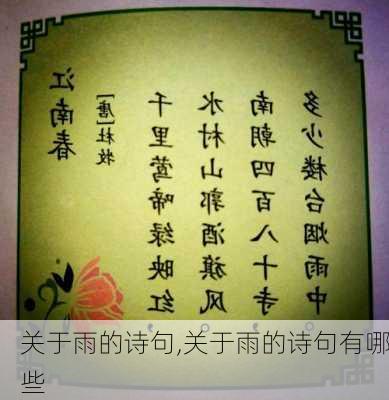 江南春
[唐]杜牧
千里莺啼绿映红
水村山郭酒旗风
南朝四百八十寺
多少楼台烟雨中
关于雨的诗句,关于雨的诗句有哪
些